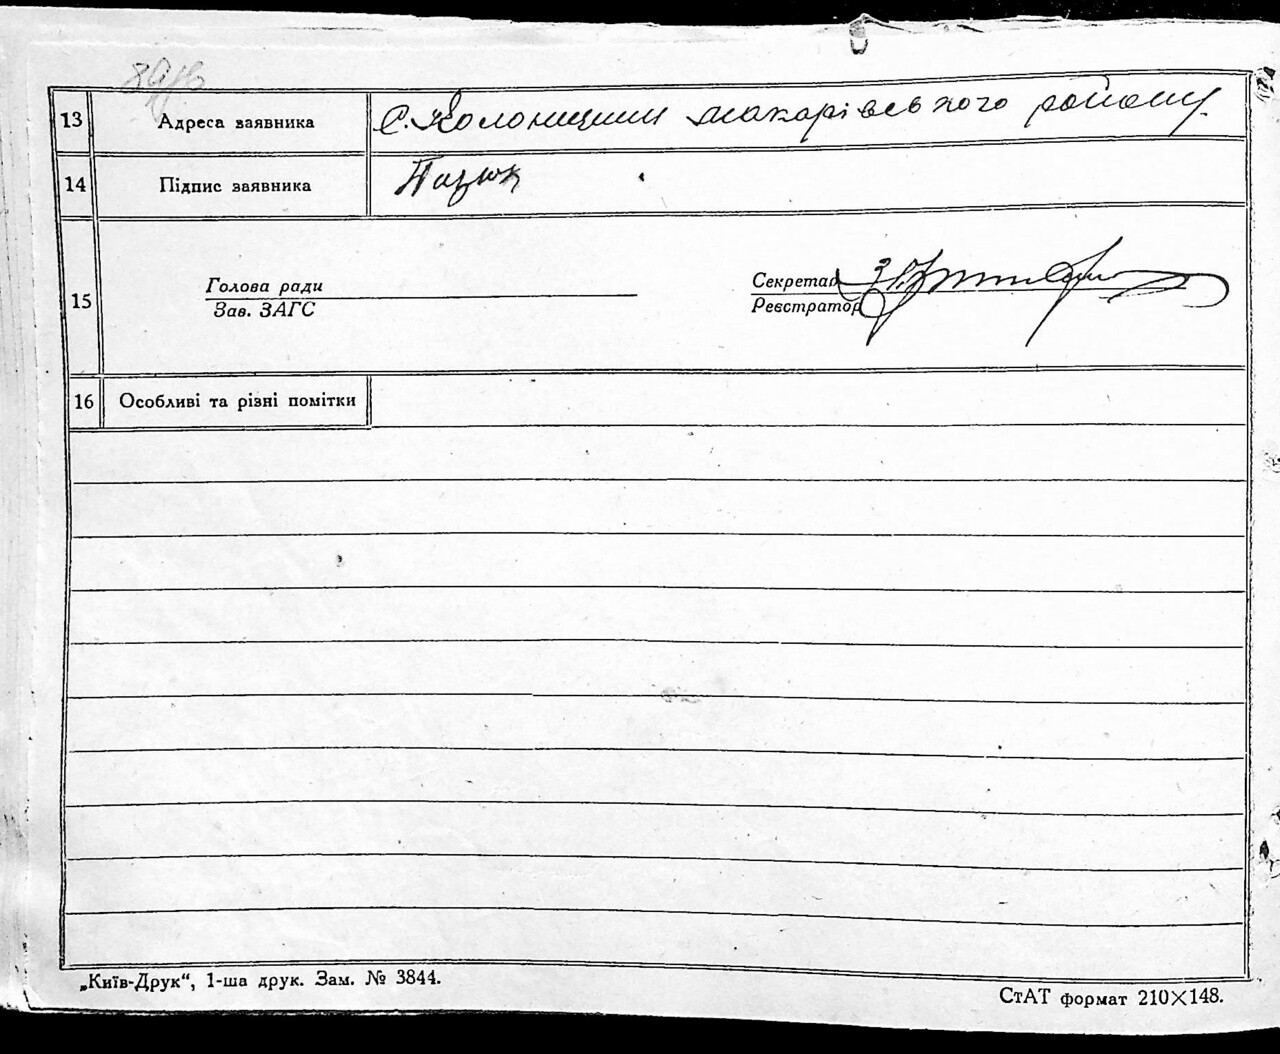 13 Адреса заявника с. Колонщини макарівського району.
14 Підпис заявника Пазюк
15 Голова ради Секретар
Зав. ЗАГС Реєстратор
16 Особливі та різні помітки
„Київ-Друк“, 1-ша друк. Зам. № 3844.
СтАТ формат 210×148.